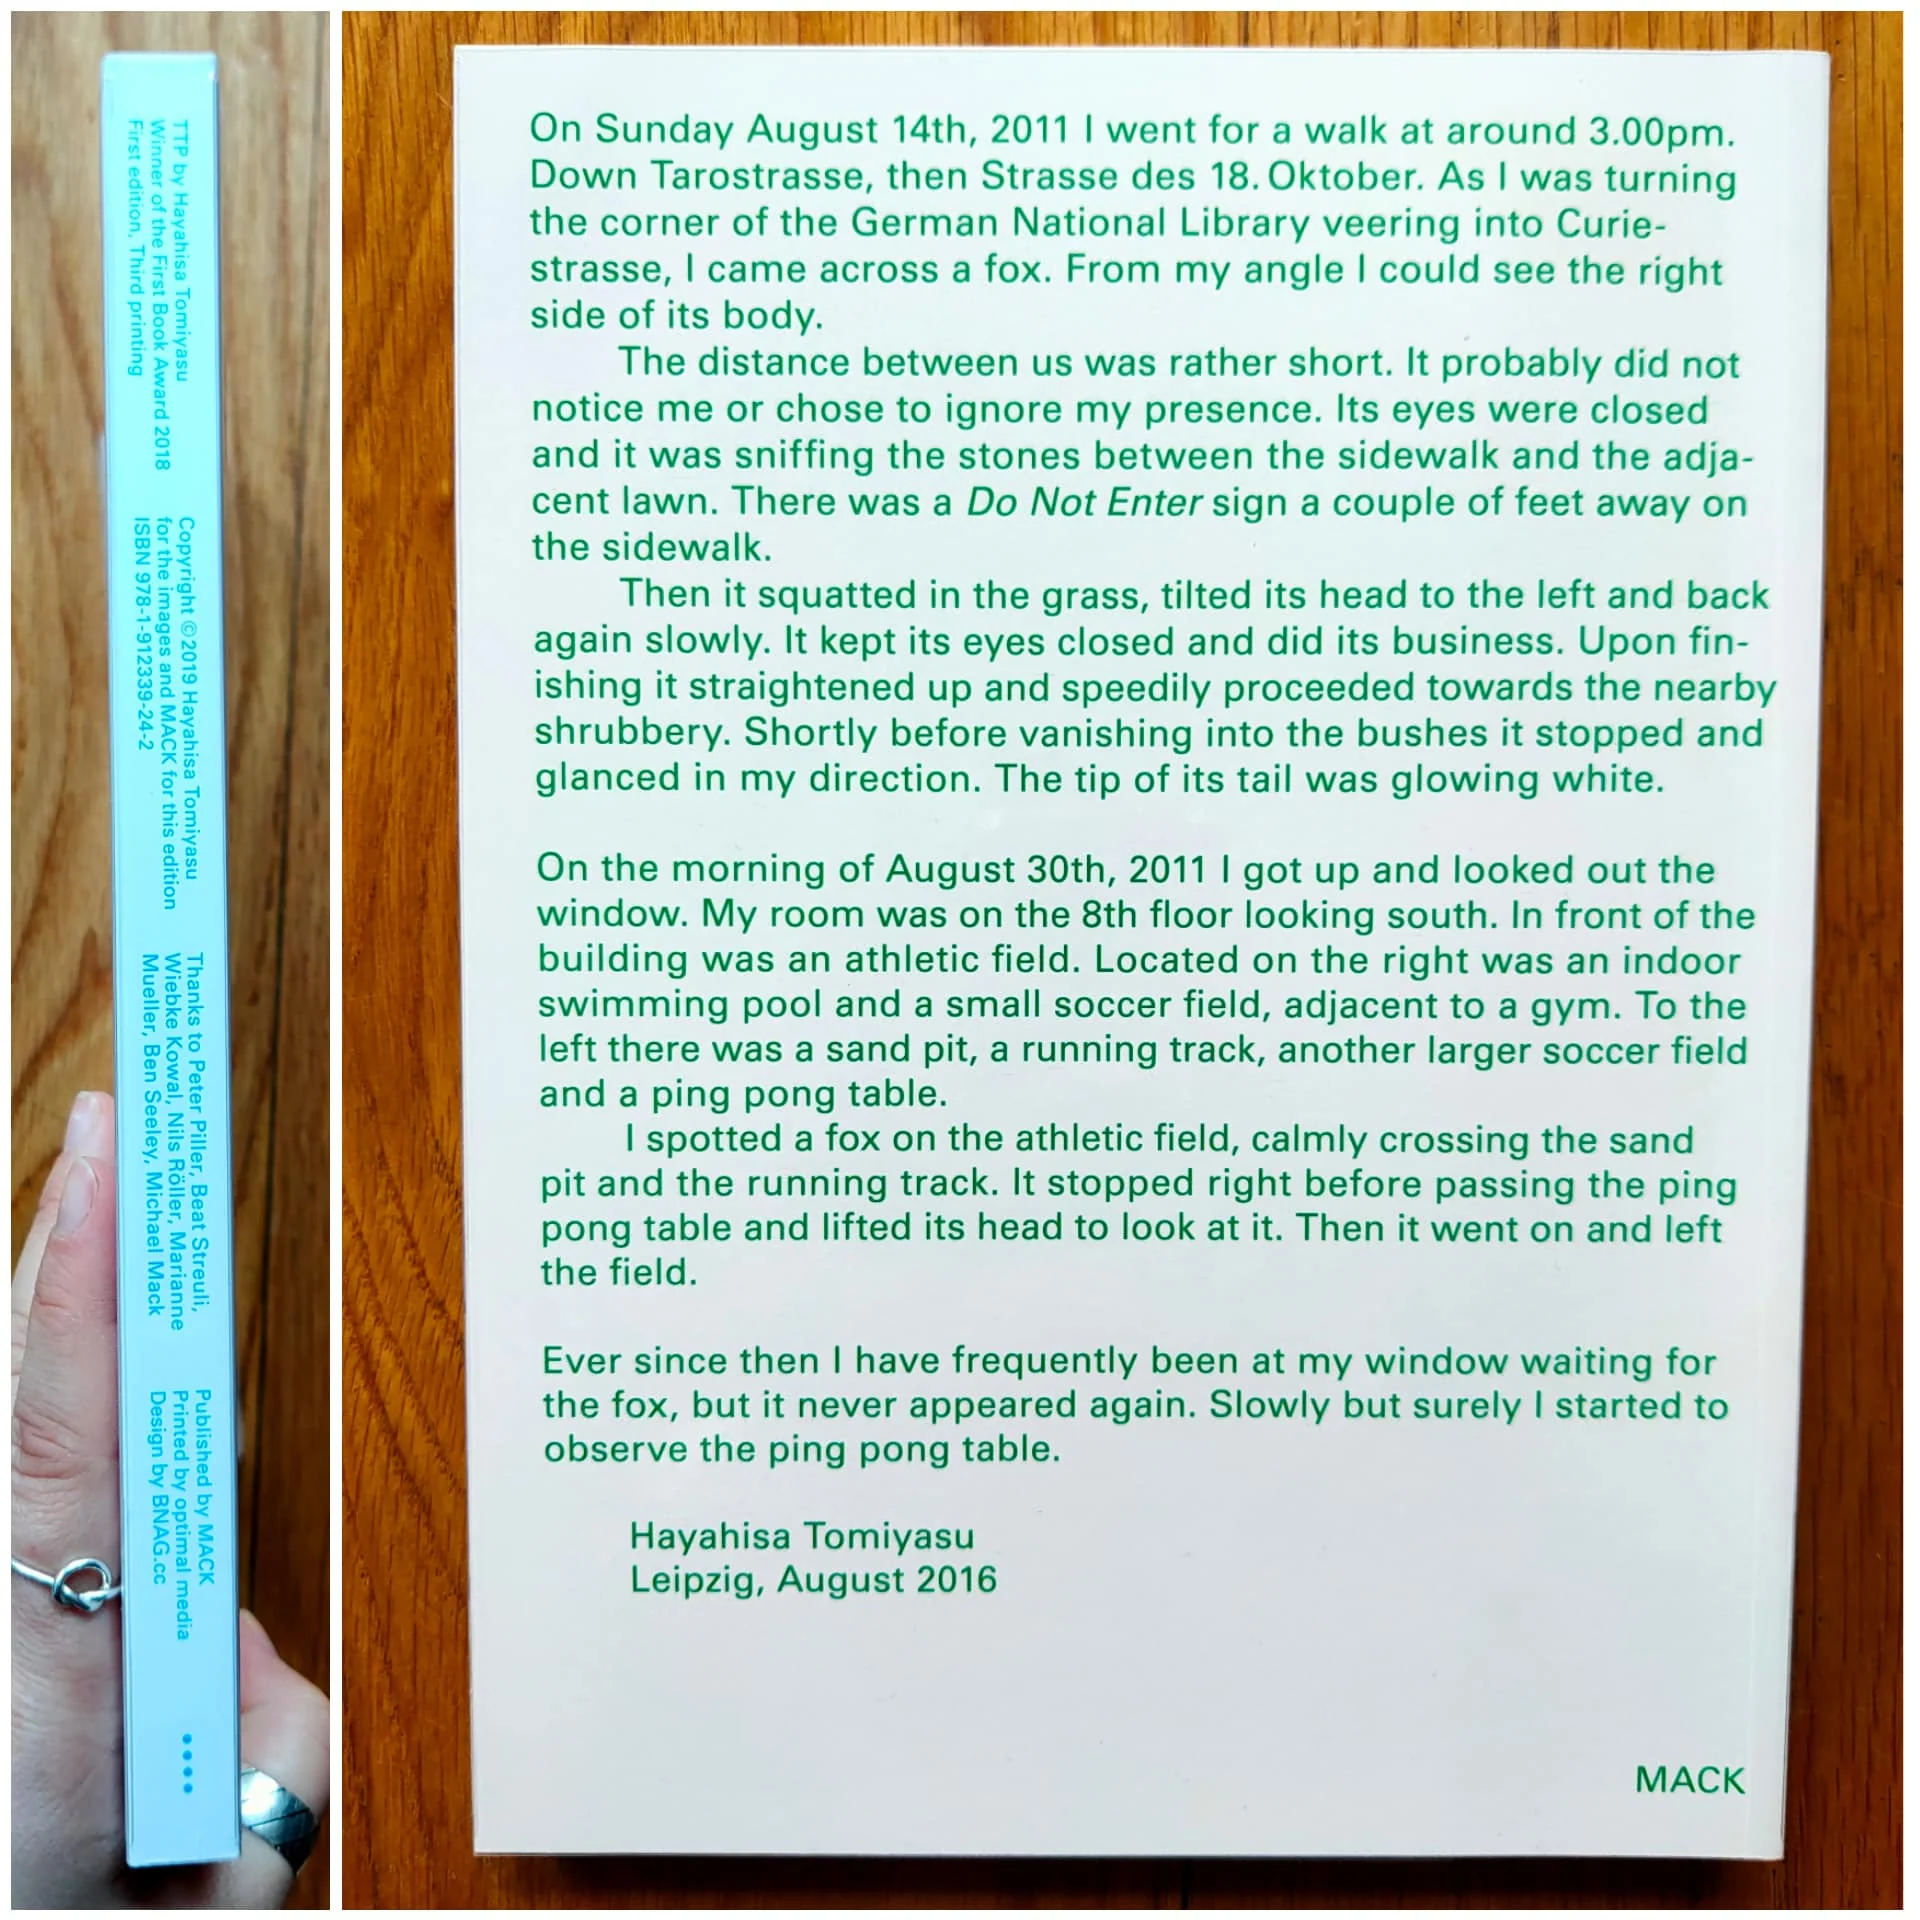 TTP by Hayahisa Tomiyasu
Winner of the First Book Award 2018
First edition, Third printing
Copyright ©2019 Hayahisa Tomiyasu
for the images and MACK for this edition
ISBN 978-1-912339-24-2
Thanks to Peter Piller, Beat Streuli,
Wiebke Kowal, Nils Röller, Marianne
Mueller, Ben Seeley, Michael Mack
Published by MACK
Printed by optimal media
Design by BNAG.cc
On Sunday August 14th, 2011 I went for a walk at around 3.00pm.
Down Tarostrasse, then Strasse des 18. Oktober. As I was turning
the corner of the German National Library veering into Curie-
strasse, I came across a fox. From my angle I could see the right
side of its body.
The distance between us was rather short. It probably did not
notice me or chose to ignore my presence. Its eyes were closed
and it was sniffing the stones between the sidewalk and the adja-
cent lawn. There was a Do Not Enter sign a couple of feet away on
the sidewalk.
Then it squatted in the grass, tilted its head to the left and back
again slowly. It kept its eyes closed and did its business. Upon fin-
ishing it straightened up and speedily proceeded towards the nearby
shrubbery. Shortly before vanishing into the bushes it stopped and
glanced in my direction. The tip of its tail was glowing white.
On the morning of August 30th, 2011 I got up and looked out the
window. My room was on the 8th floor looking south. In front of the
building was an athletic field. Located on the right was an indoor
swimming pool and a small soccer field, adjacent to a gym. To the
left there was a sand pit, a running track, another larger soccer field
and a ping pong table.
I spotted a fox on the athletic field, calmly crossing the sand
pit and the running track. It stopped right before passing the ping
pong table and lifted its head to look at it. Then it went on and left
the field.
Ever since then I have frequently been at my window waiting for
the fox, but it never appeared again. Slowly but surely I started to
observe the ping pong table.
Hayahisa Tomiyasu
Leipzig, August 2016
MACK